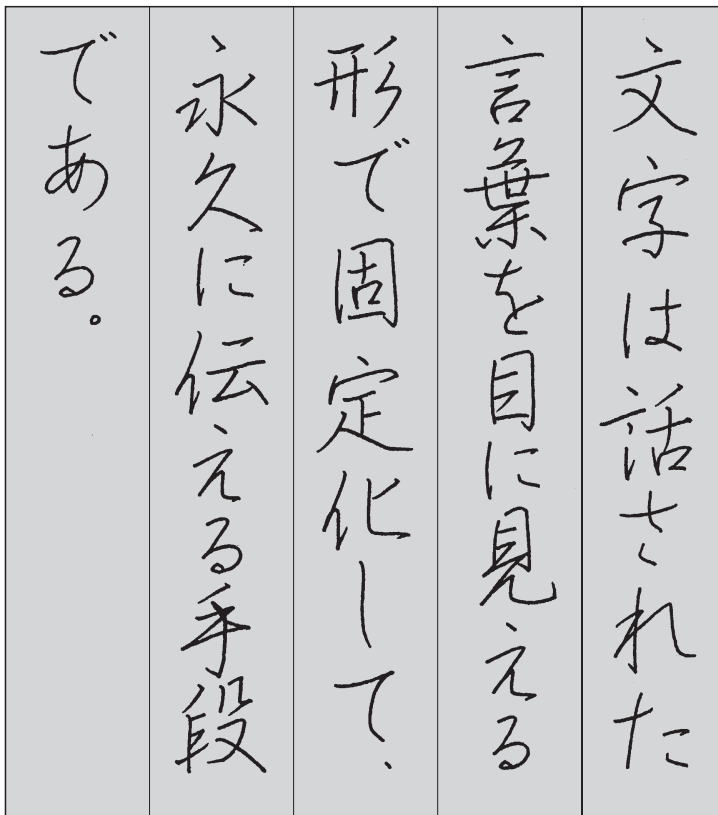 文字は話された
言葉を目に見える
形で固定化して、
永久に伝える手段
である。